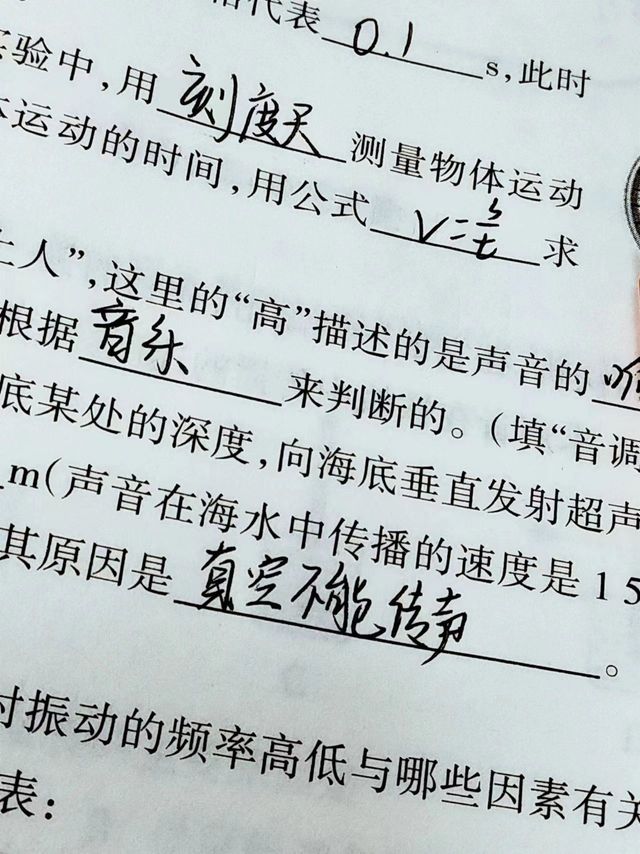 代表 0.1 s,此时
验中,用 刻度尺 测量物体运动
运动的时间,用公式 v=s/t 求
人”,这里的“高”描述的是声音的
根据 音乐 来判断的。(填“音调
底某处的深度,向海底垂直发射超声
m(声音在海水中传播的速度是15
其原因是 真空不能传声 。
时振动的频率高低与哪些因素有关
表: